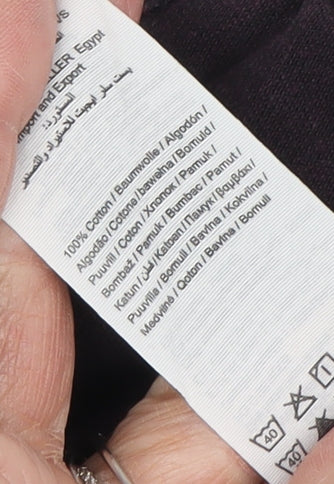 US
LLER Egypt
mport and Export
المستورد:
بست سلر ايجيبت للاستيراد والتصدير
100% Cotton / Baumwolle / Algodón /
Algodão / Cotone / bawełna / Bomuld /
Puuvill / Coton / Хлопок / Pamuk /
Bombaž / Pamuk / Bumbac / Pamut /
Katun / قطن / Katoen / Памук / βαμβάκι /
Puuvilla / Bomull / Bavlna / Kokvilna /
Medvilnė / Qoton / Bavlna / Bomull
40
40